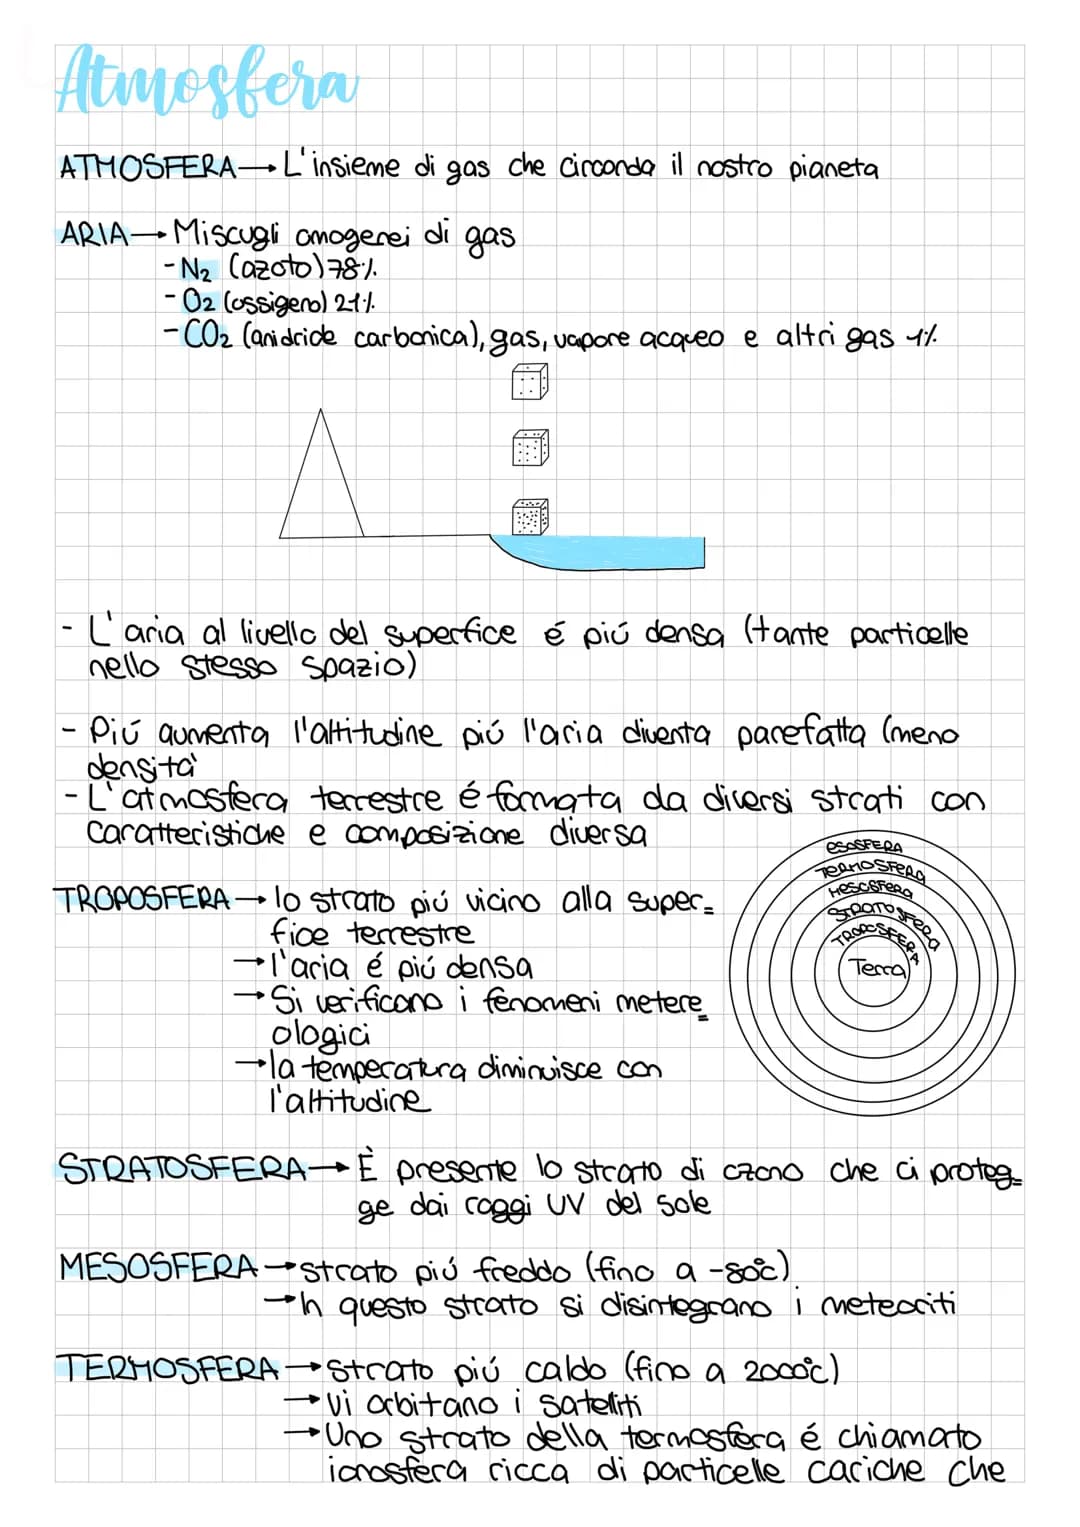 Atmosfera
ATMOSFERA→ L'insieme di gas che circonda il nostro pianeta
ARIA→ Miscugli omogenei di gas
- N₂ (azoto) 78%
- O₂ (ossigeno) 21%
- CO₂ (anidride carbonica), gas, vapore acqueo e altri gas 1%
- L'aria al livello del superfice é piú densa (tante particelle
nello stesso spazio)
- Piú aumenta l'altitudine piú l'aria diventa parefatta (meno
densità
- L'atmosfera terrestre é formata da diversi strati con
caratteristiche e composizione diversa
ESOSFERA
TERMOSFERA
MESOSFERA
STRATOSFERA
TROPOSFERA
Terra
TROPOSFERA→ lo strato piú vicino alla super=
fice terrestre
→ l'aria é piú densa
→ Si verificano i fenomeni metere=
ologici
→ la temperatura diminuisce con
l'altitudine
STRATOSFERA→ È presente lo strato di ozono che ci proteg=
ge dai raggi UV del sole
MESOSFERA→ strato piú freddo (fino a -80°c)
→ In questo strato si disintegrano i meteoriti
TERMOSFERA→ strato piú caldo (fino a 2000°c)
→ Vi orbitano i sateliti
→ Uno strato della termosfera é chiamato
ionosfera ricca di particelle cariche che